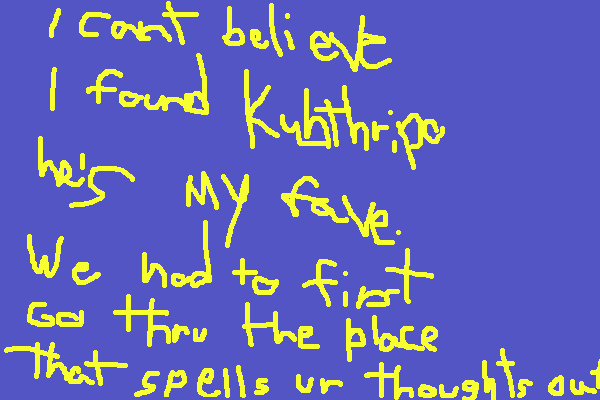 I cant believe
I found Kuhthripo
he's MY fave.
We had to first
Go thru the place
that spells ur thoughts out